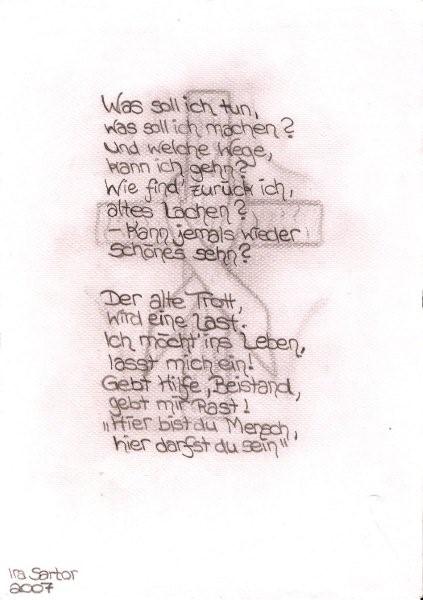 Was soll ich tun,
was soll ich machen?
Und welche Wege,
kann ich gehn?
Wie find' zurück ich,
altes Lachen?
– Kann jemals wieder
schönes sehn?
Der alte Trott,
wird eine Last.
Ich möcht ins Leben,
lasst mich ein!
Gebt Hilfe, Beistand,
gebt mir Rast!
„Hier bist du Mensch,
hier darfst du sein"
Ira Sartor
2007